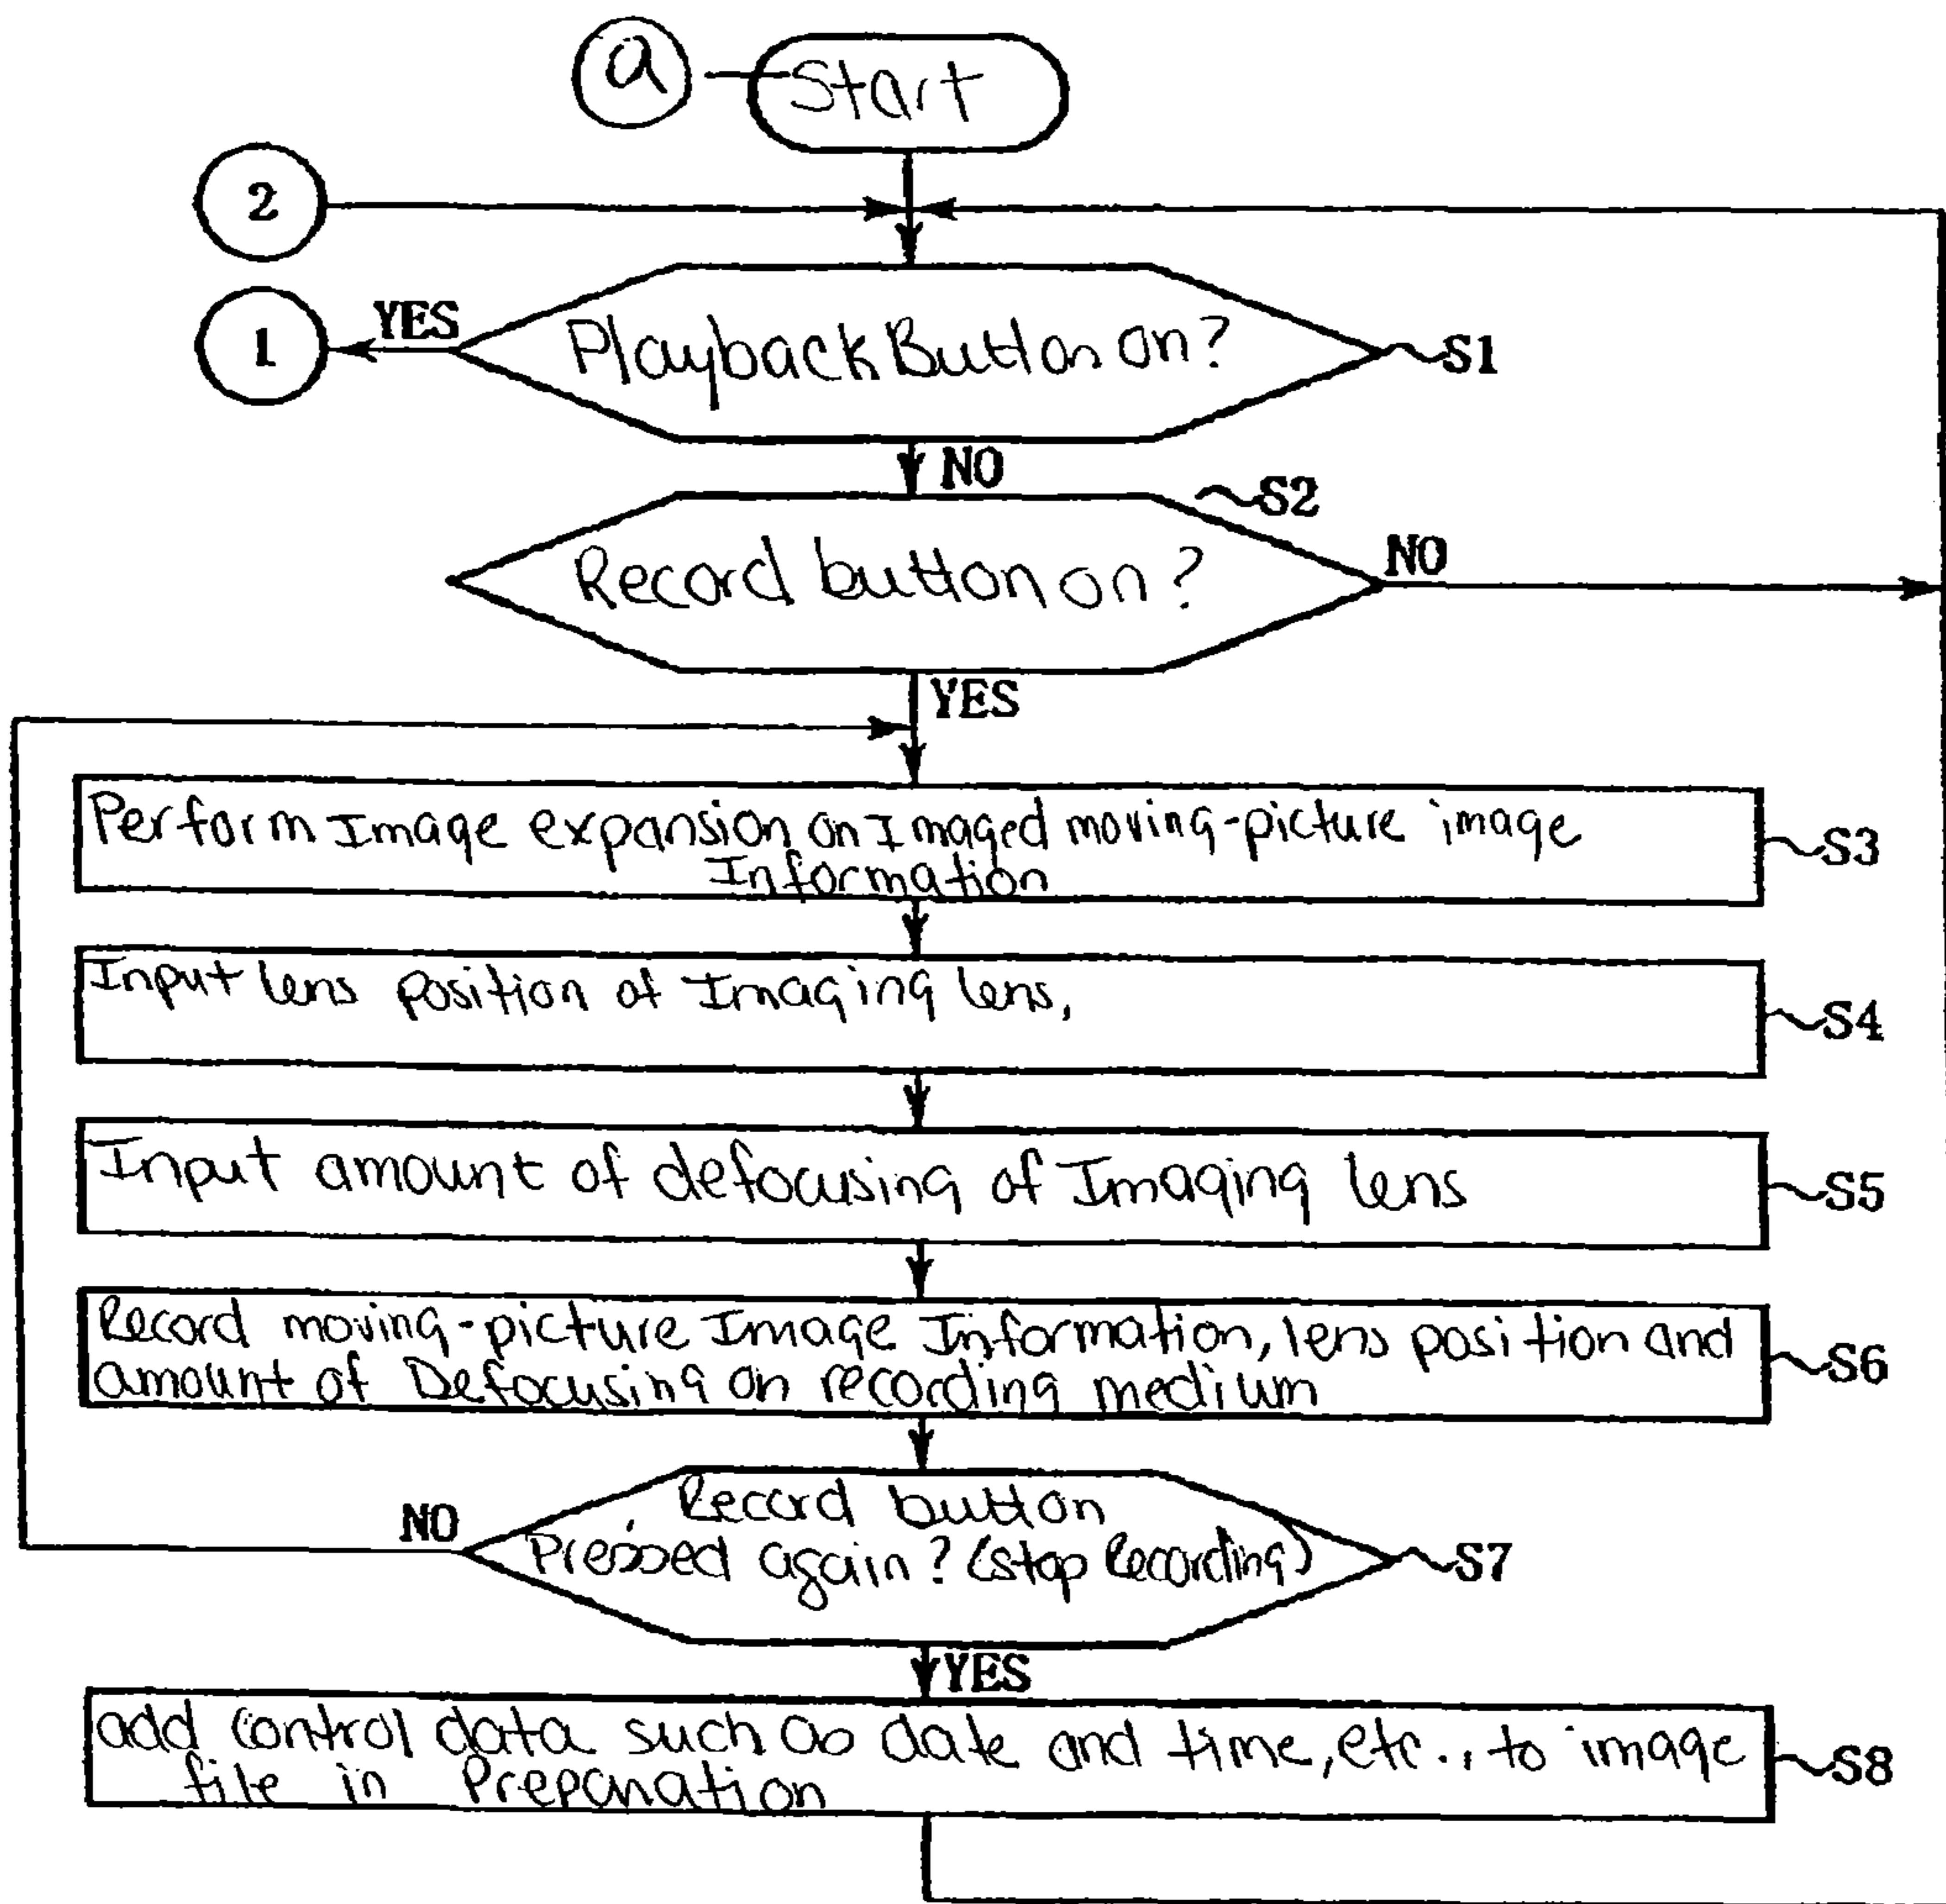 a
Start
2
1
YES
Playback Button on?
S1
NO
S2
Record button on?
NO
YES
Perform Image expansion on Imaged moving-picture image
Information
S3
Input lens position of Imaging lens,
S4
Input amount of defocusing of Imaging lens
S5
Record moving-picture Image Information, lens position and
amount of Defocusing on recording medium
S6
NO
Record button
Pressed again? (stop Recording)
S7
YES
add control data such as date and time, etc., to image
file in Preparation
S8